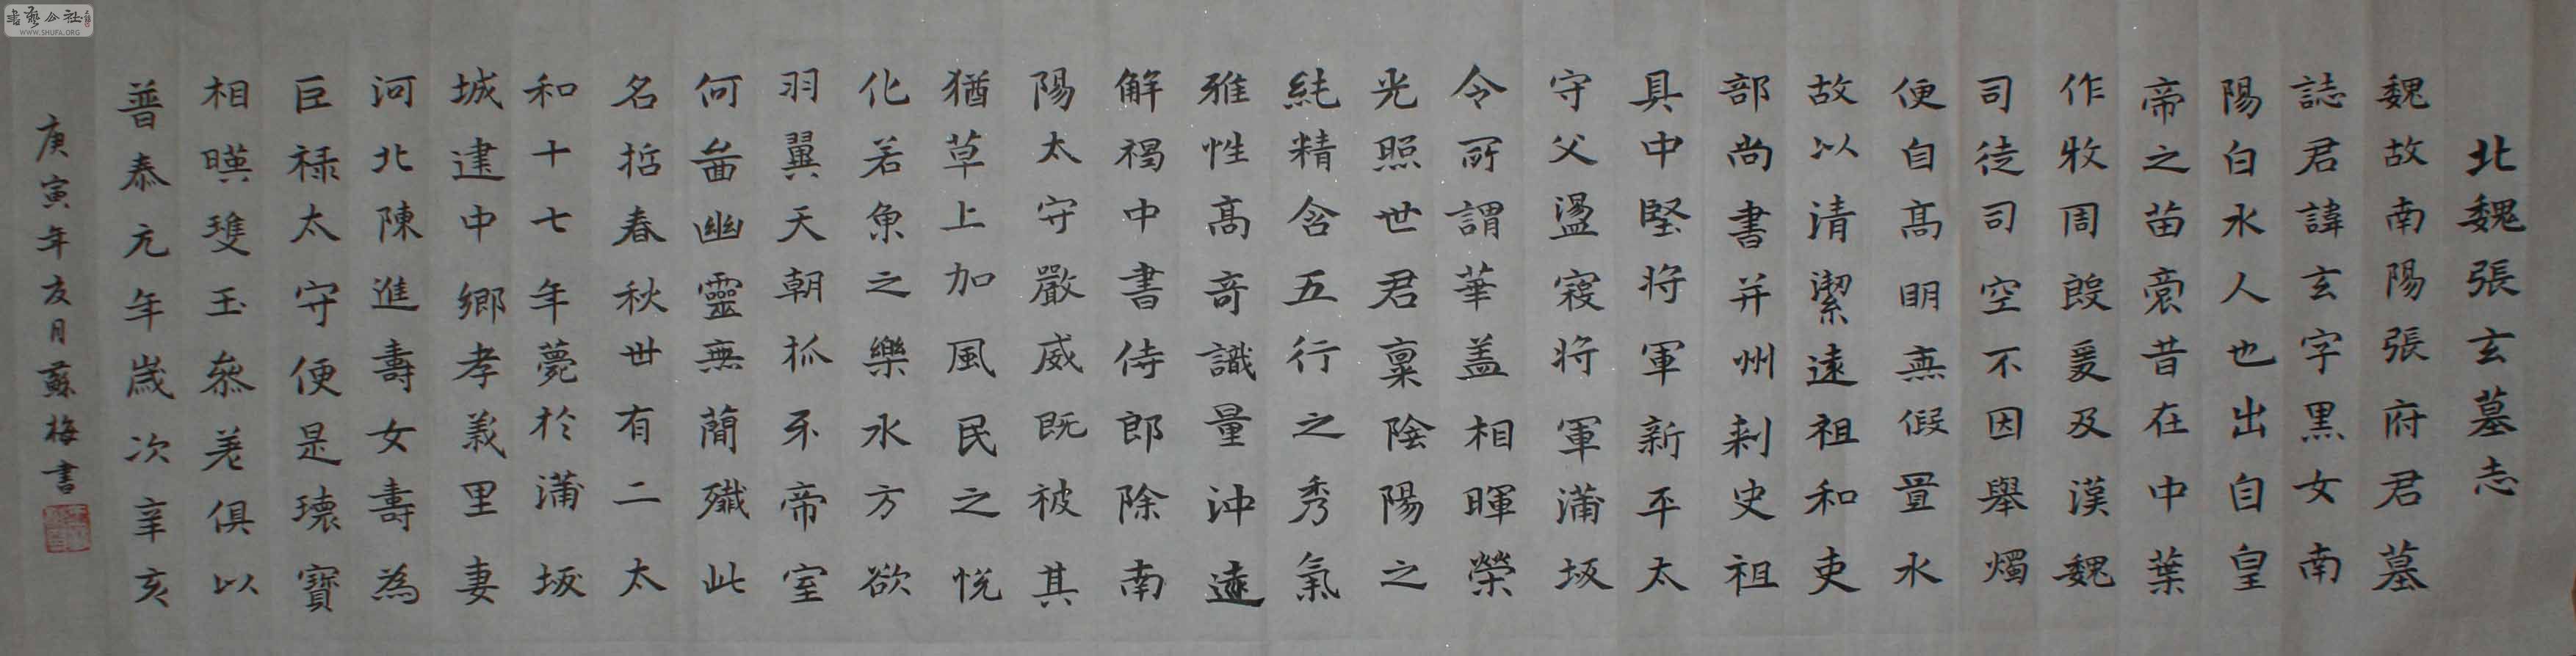 北魏張玄墓志
魏故南陽張府君墓
誌君諱玄字黑女南
陽白水人也出自皇
帝之苗裔昔在中葉
作牧周殷爰及漢魏
司徒司空不因舉燭
便自高明無假置水
故以清潔遠祖和吏
部尚書并州刺史祖
具中堅將軍新平太
守父盪寇將軍蒲坂
令所謂華蓋相暉榮
光照世君稟陰陽之
純精含五行之秀氣
雅性高奇識量沖遠
解褐中書侍郎除南
陽太守嚴威既被其
猶草上加風民之悅
化若魚之樂水方欲
羽翼天朝抓牙帝室
何啚幽靈無簡殲此
名哲春秋世有二太
和十七年薨於蒲坂
城建中鄉孝義里妻
河北陳進壽女壽為
巨祿太守便是瓌寶
相暎瓊玉參差俱以
普泰元年歲次辛亥
庚寅年友月蘇梅書
書藝公社
WWW.SHUFA.ORG